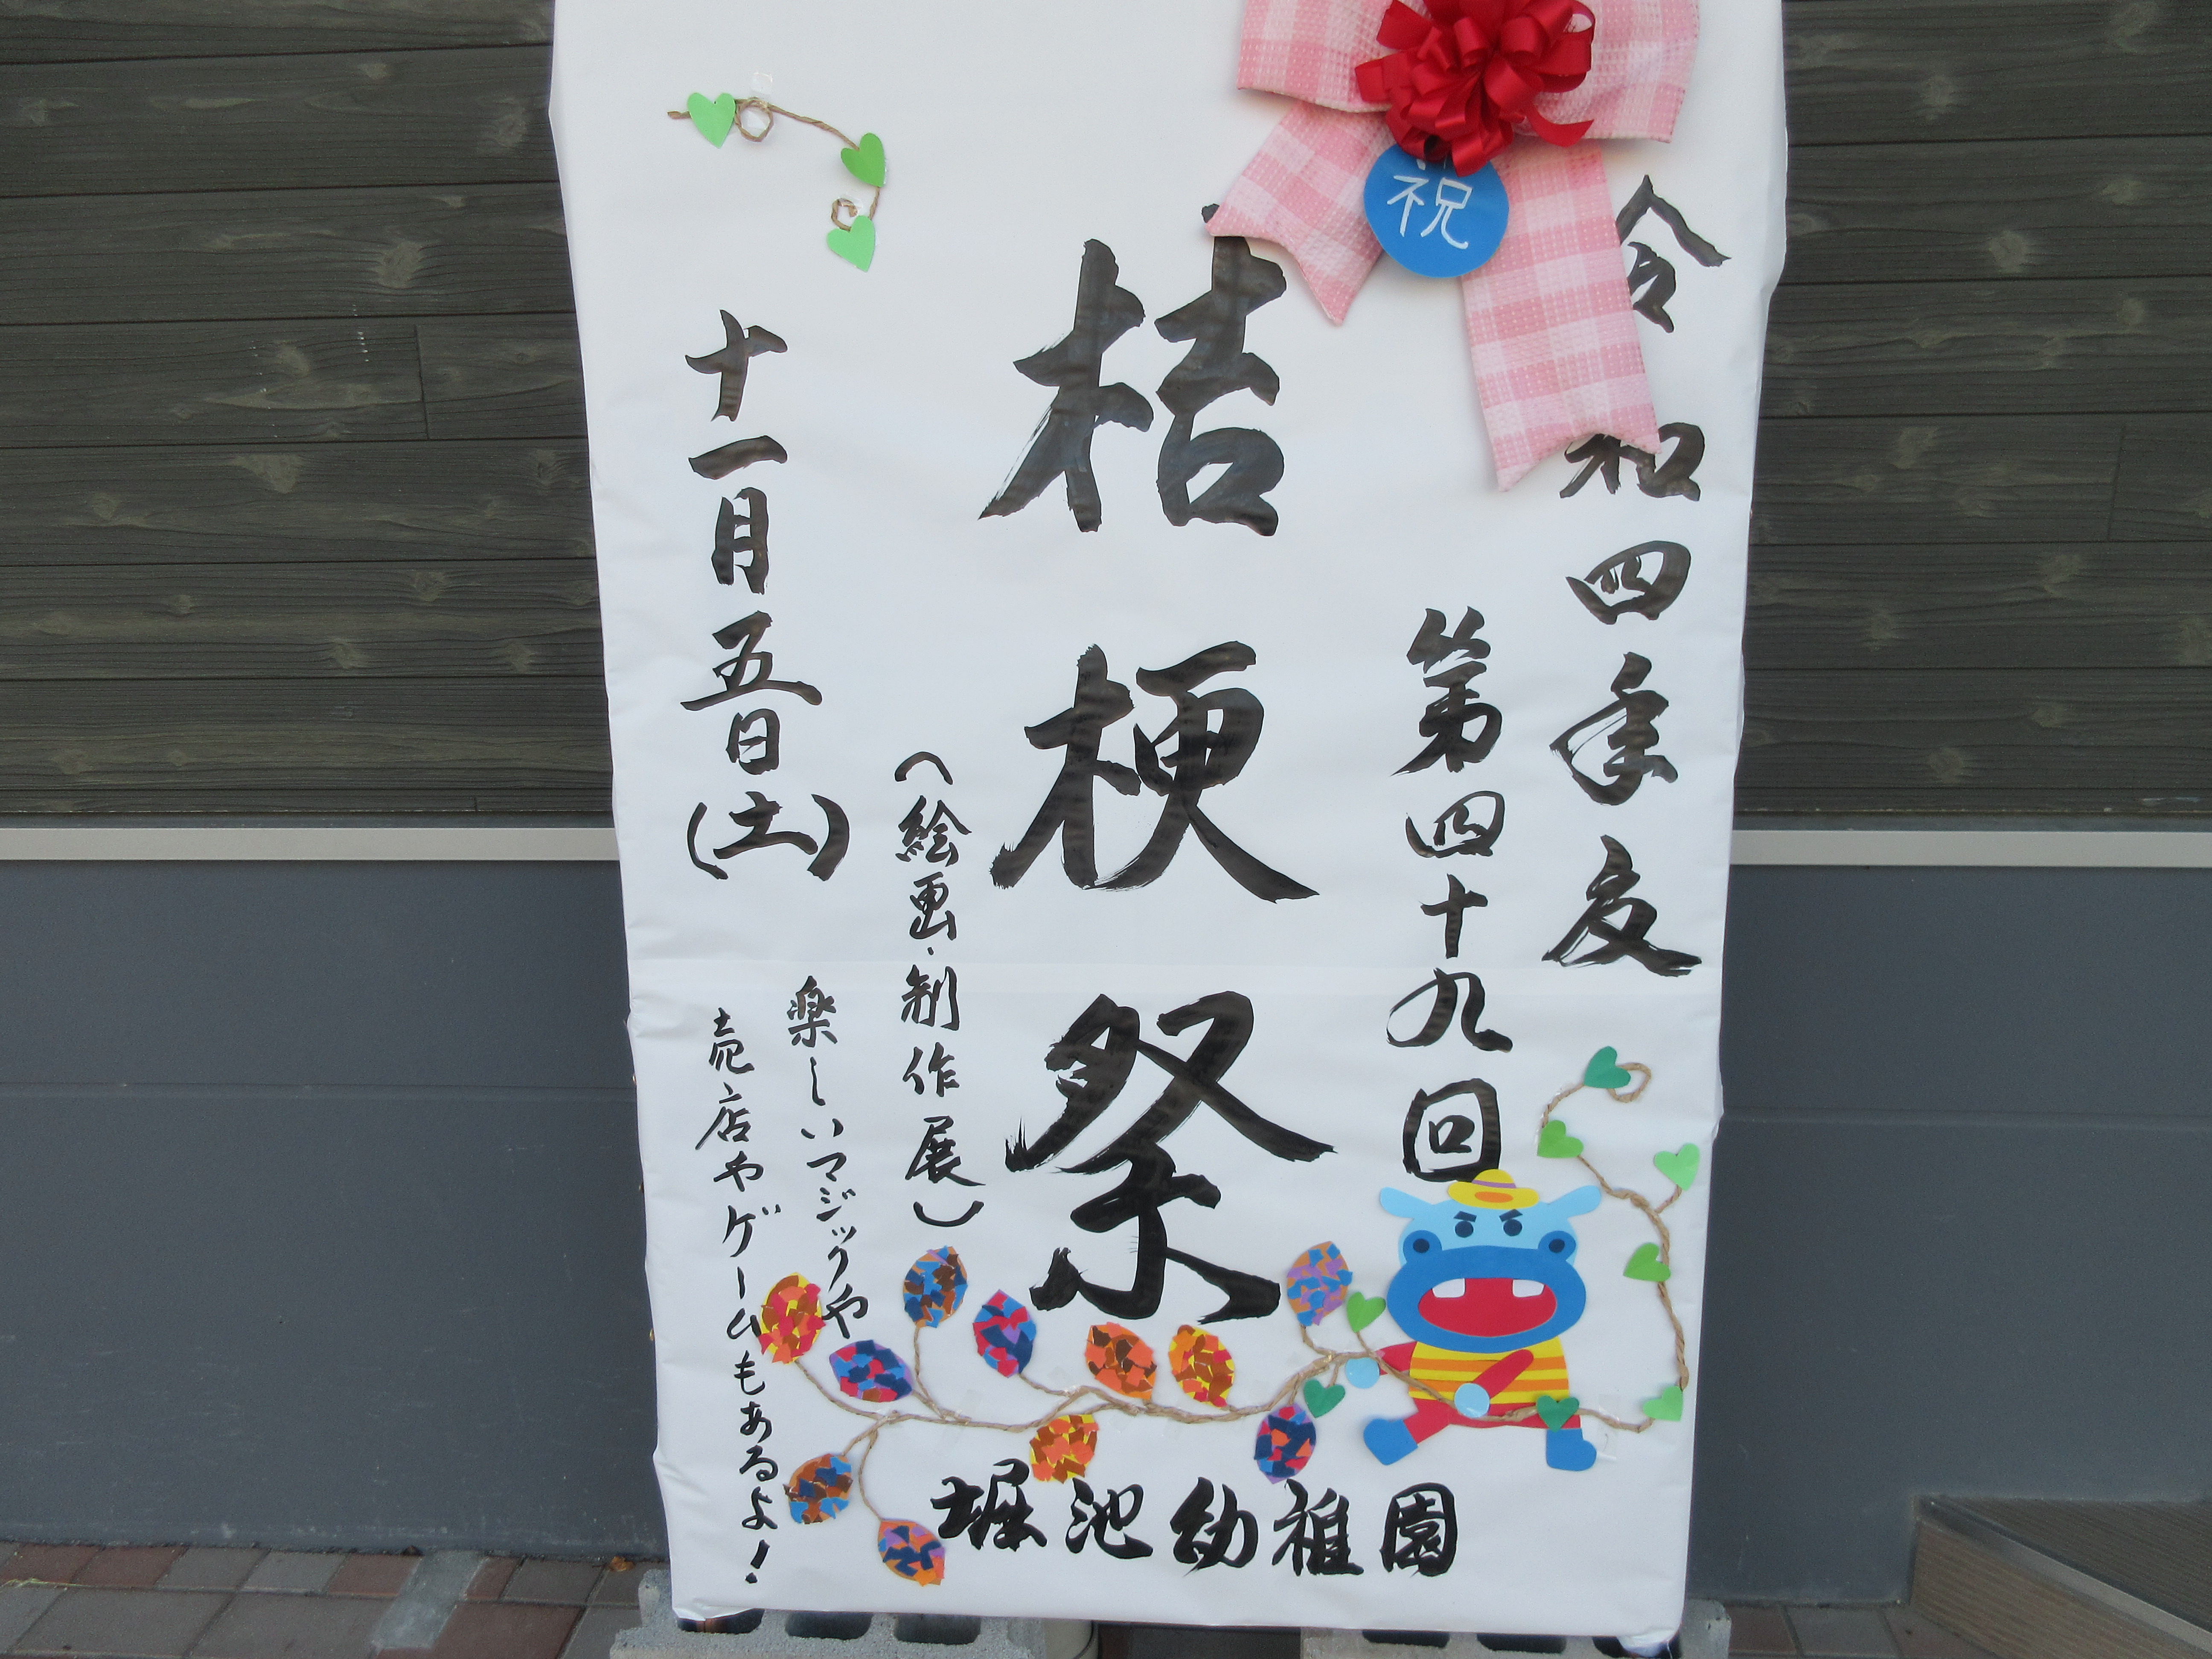 祝
令和四年度
第四十九回
桔梗祭
（絵画・制作展）
十一月五日（土）
楽しいマジックや
売店やゲームもあるよ！
堀池幼稚園